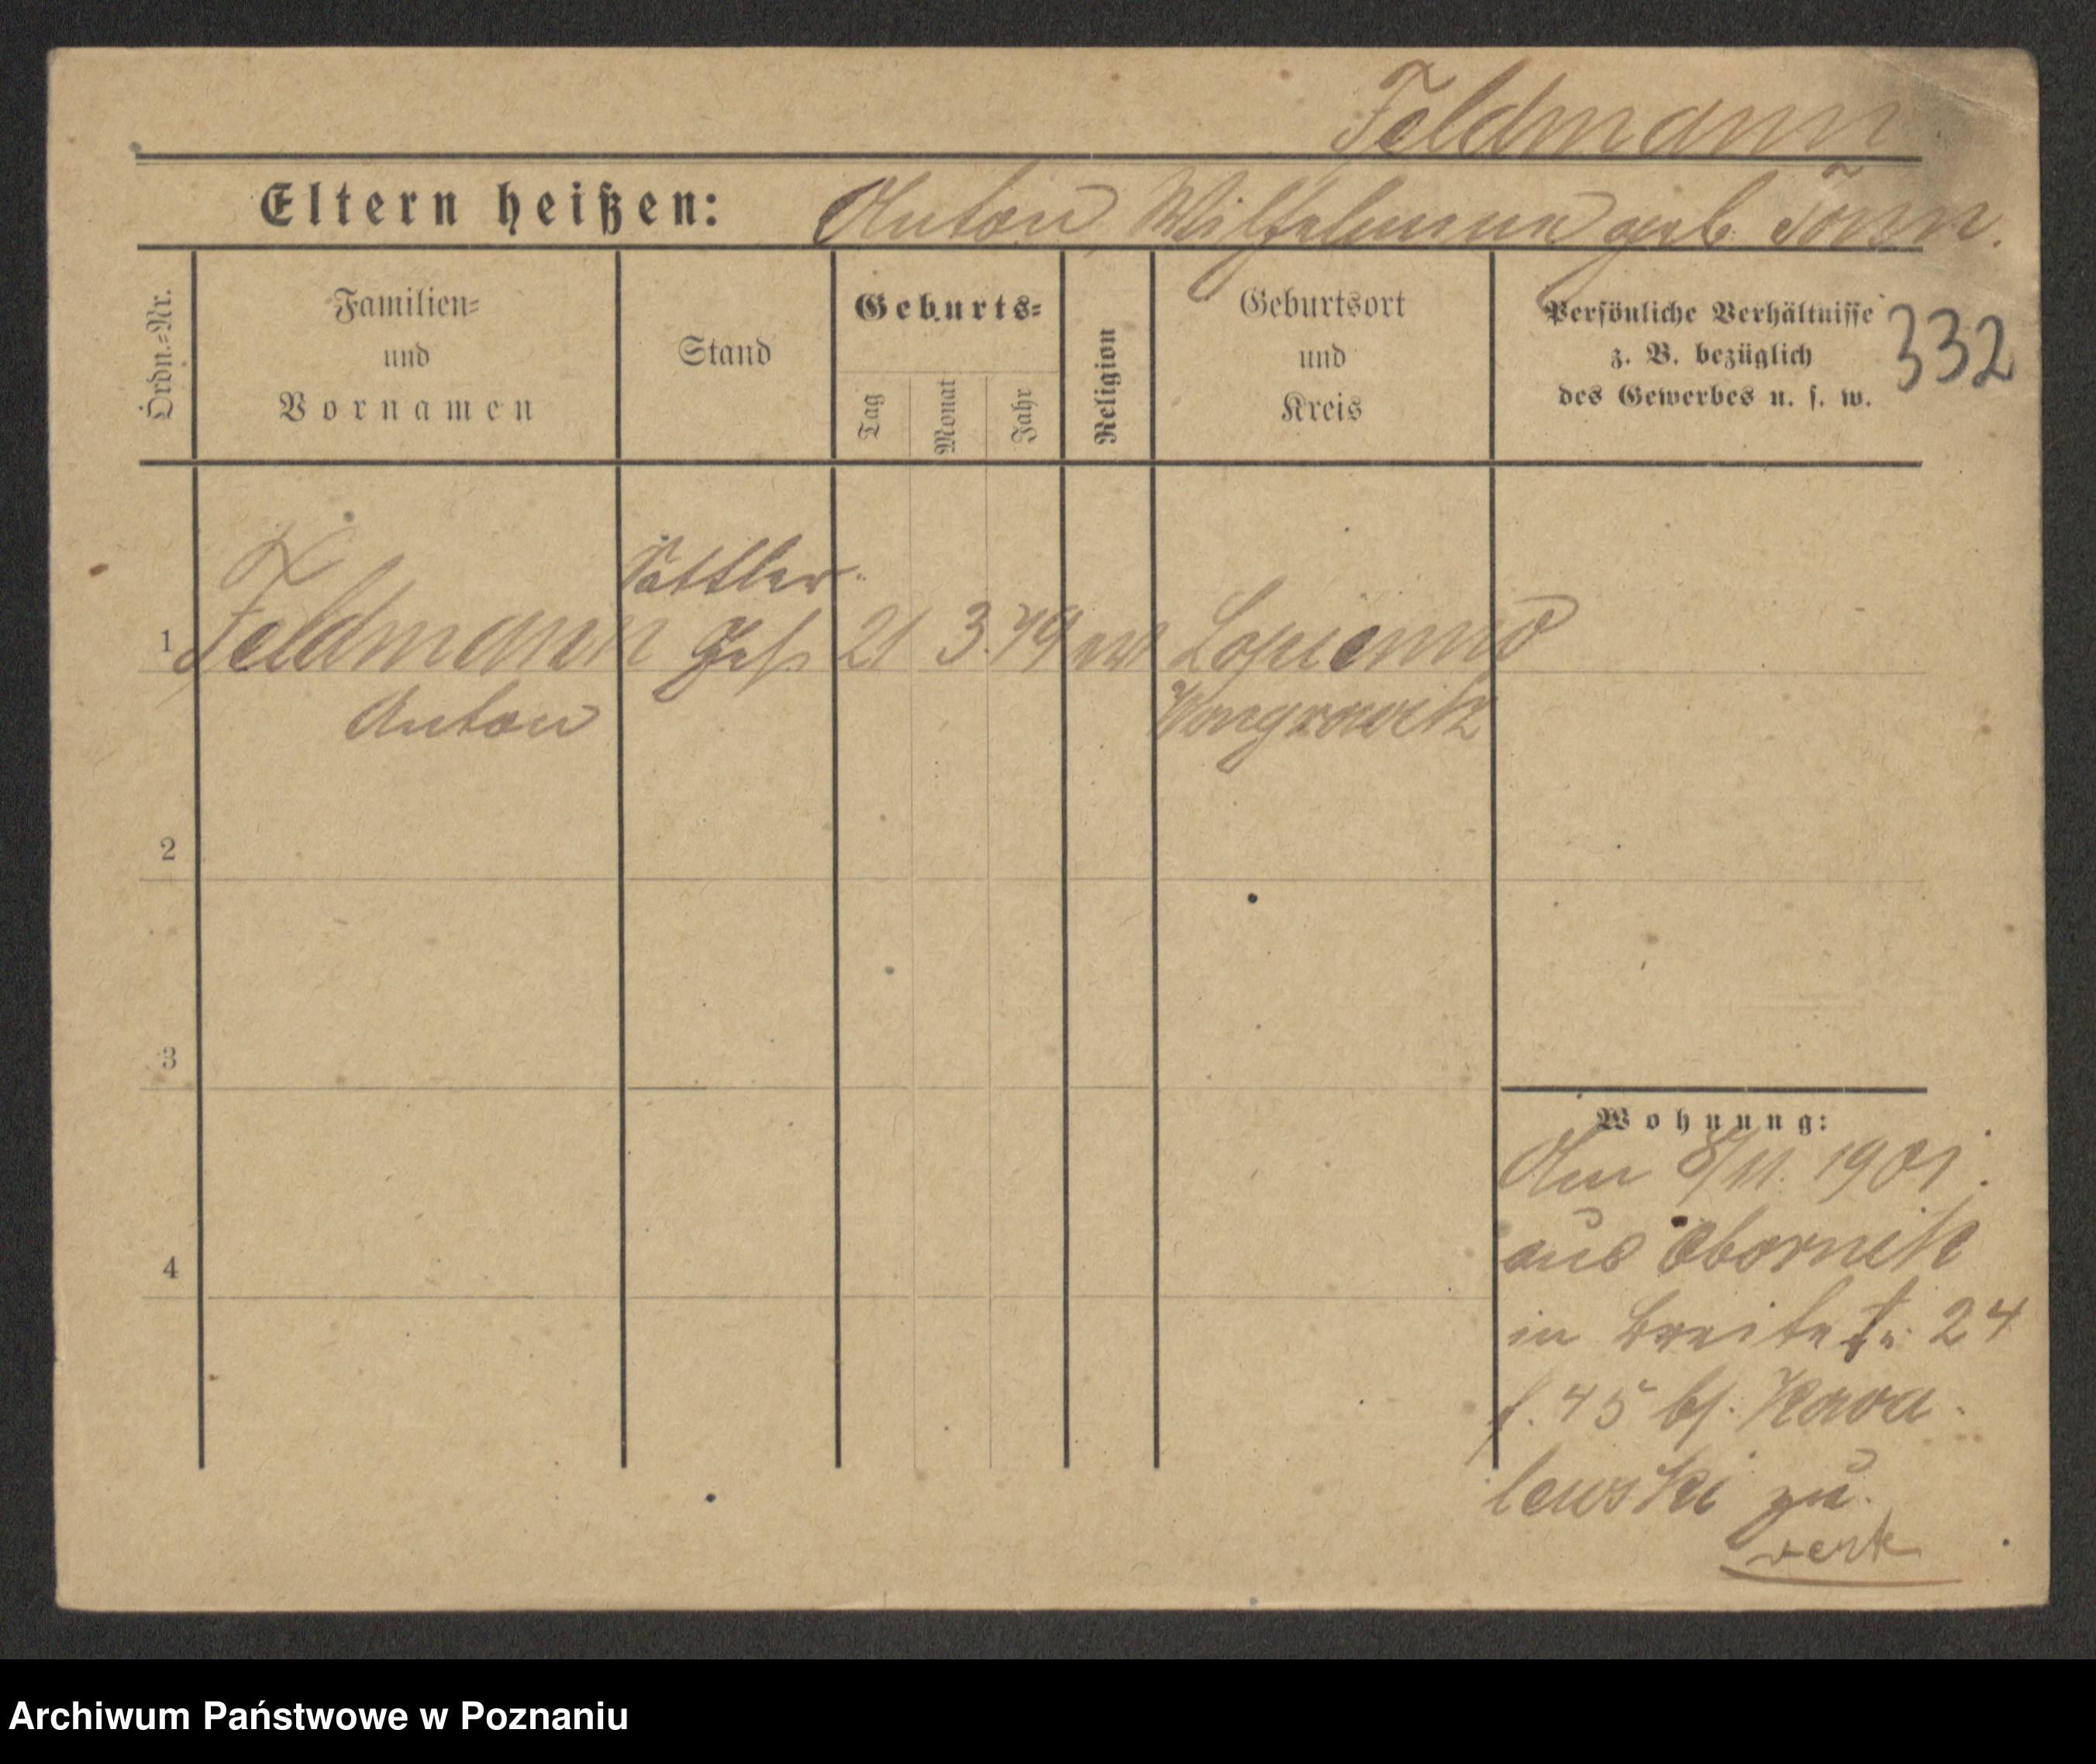 Feldmann
Eltern heißen: Anton Wilhelmine geb. Tonn.
Ordn.-Nr.
Familien- und Vornamen
Stand
Geburts-
Tag
Monat
Jahr
Religion
Geburtsort und Kreis
Persönliche Verhältnisse z. B. bezüglich des Gewerbes u. s. w.
332
Sattler-
1 Feldmann Ges. 21 3. 79 Lopienno
Anton Wongrowitz
2
3
4
Wohnung:
Am 8/11. 1901.
aus Obornik
in Breitestr. 24
b/. Kowa-
lewski zu.